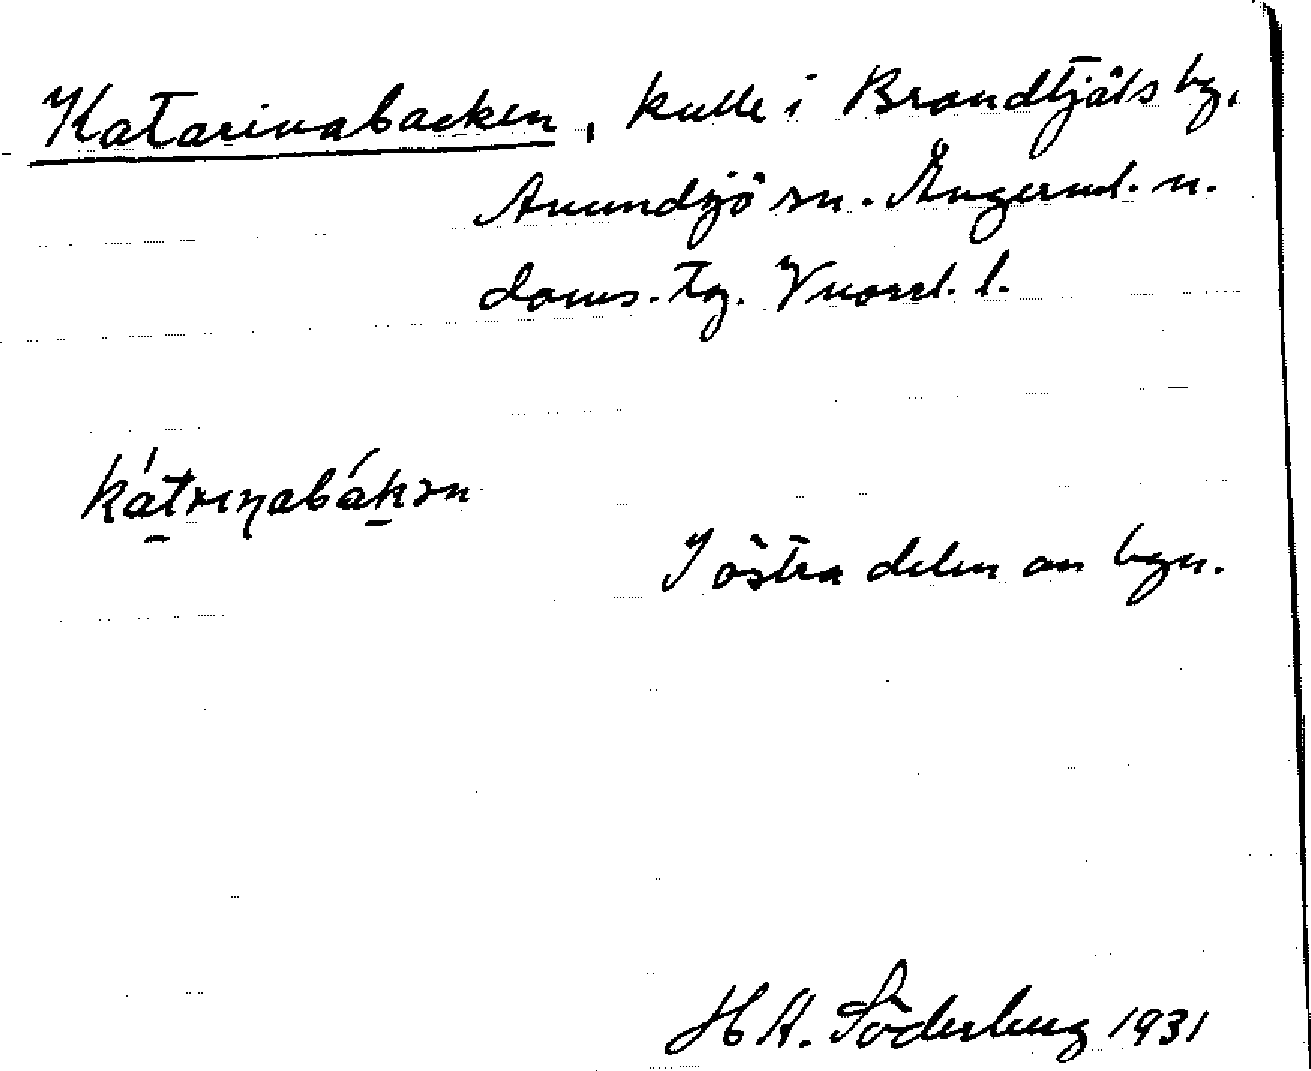 Katarinabacken, kulle i Brandtjäls by,
Anundsjö sn. Ångerml. n.
doms. tg. Vnorrl. l.
kátrinabákən
I östra delen av byn.
H A. Söderberg 1931